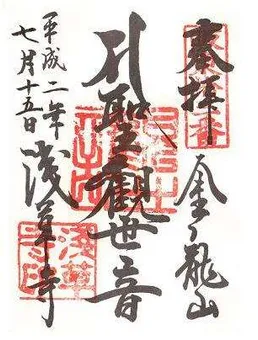 奉拝
金龍山
聖観世音
平成二年
七月十五日
浅草寺